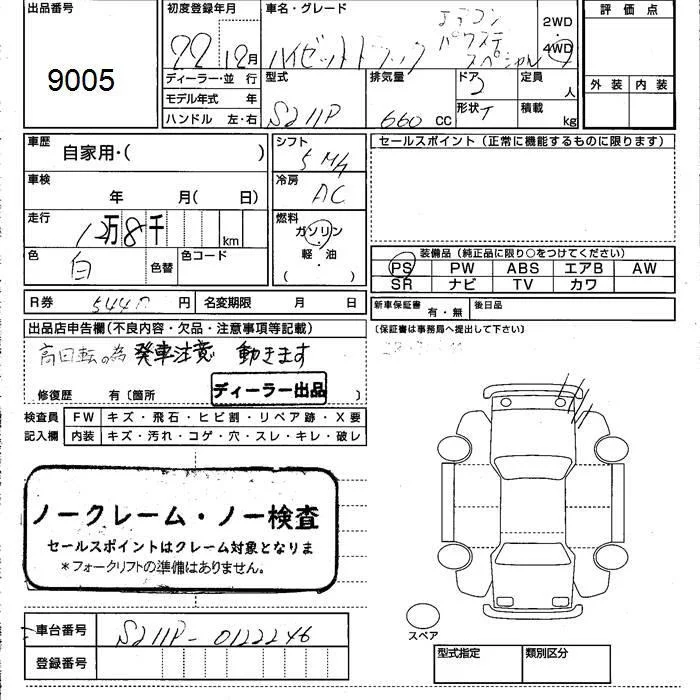 出品番号
9005
初度登録年月
22 12月
ディーラー・並 行
モデル年式 年
ハンドル 左・右
車名・グレード
ハイゼットトラック
エアコン
パワステ
スペシャル
2WD
4WD
型式
S211P
排気量
660 cc
ドア
2
形状
定員
人
積載
kg
評価点
外装 内装
車歴
自家用・( )
車検
年 月( 日)
走行
12万8千
km
色
白
色替
色コード
シフト
5 MA
冷房
AC
燃料
ガソリン・
軽・油
( )
セールスポイント(正常に機能するものに限ります)
装備品(純正品に限り○をつけてください)
PS PW ABS エアB AW
SR ナビ TV カワ
R券
円
名変期限 月 日
新車保証書
有・無
後日品
(保証書は事務局へ提出して下さい)
出品店申告欄(不良内容・欠品・注意事項等記載)
高回転の為 発車注意 動きます
修復歴 有〔箇所 〕
ディーラー出品
検査員 FW キズ・飛石・ヒビ割・リペア跡・X要
記入欄 内装 キズ・汚れ・コゲ・穴・スレ・キレ・破レ
ノークレーム・ノー検査
セールスポイントはクレーム対象となりま
*フォークリフトの準備はありません。
車台番号
S211P-0122246
登録番号
スペア
型式指定
類別区分